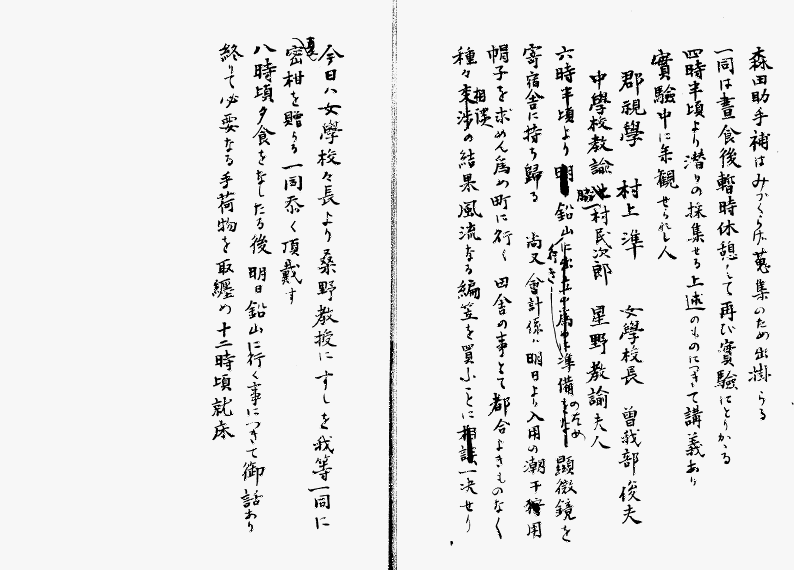 森田助手補はみづくらげ蒐集のため出掛らる
一同は晝食後暫時休憩して再び實驗にとりかゝる
四時半頃より潜りの採集せる上述のものにつきて講義あり
實驗中に来観せられし人
郡視學 村上準 女學校長 曽我部俊夫
中學校教諭 脇村民次郎 星野教諭夫人
六時半頃より 鉛山行き準備のため 顕微鏡を
寄宿舎に持ち歸る 尚又會計係ハ明日より入用の潮干狩用
帽子を求めん為め町に行く 田舎の事とて都合よきものなく
種々相談の結果風流なる編笠を買ふことに一决せり
今日ハ女學校々長より桑野教授にすしを我等一同に
夏密柑を贈らる 一同忝く頂戴す
八時頃夕食をなしたる後 明日鉛山に行く事につきて御話あり
終りて必要なる手荷物を取纏め十二時頃就床